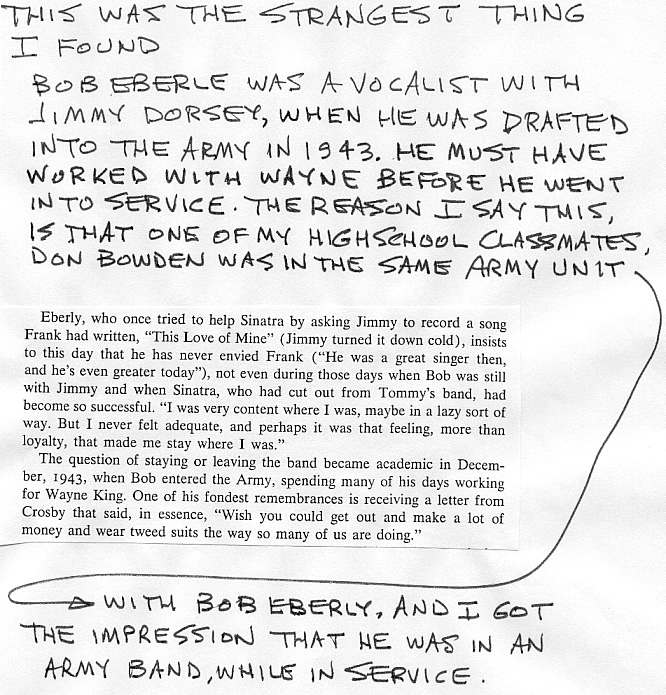 THIS WAS THE STRANGEST THING
I FOUND
BOB EBERLE WAS A VOCALIST WITH
JIMMY DORSEY, WHEN HE WAS DRAFTED
INTO THE ARMY IN 1943. HE MUST HAVE
WORKED WITH WAYNE BEFORE HE WENT
INTO SERVICE. THE REASON I SAY THIS,
IS THAT ONE OF MY HIGHSCHOOL CLASSMATES,
DON BOWDEN WAS IN THE SAME ARMY UNIT
Eberly, who once tried to help Sinatra by asking Jimmy to record a song
Frank had written, “This Love of Mine” (Jimmy turned it down cold), insists
to this day that he has never envied Frank (“He was a great singer then,
and he’s even greater today”), not even during those days when Bob was still
with Jimmy and when Sinatra, who had cut out from Tommy’s band, had
become so successful. “I was very content where I was, maybe in a lazy sort of
way. But I never felt adequate, and perhaps it was that feeling, more than
loyalty, that made me stay where I was.”
The question of staying or leaving the band became academic in Decem-
ber, 1943, when Bob entered the Army, spending many of his days working
for Wayne King. One of his fondest remembrances is receiving a letter from
Crosby that said, in essence, “Wish you could get out and make a lot of
money and wear tweed suits the way so many of us are doing.”
WITH BOB EBERLY, AND I GOT
THE IMPRESSION THAT HE WAS IN AN
ARMY BAND, WHILE IN SERVICE.